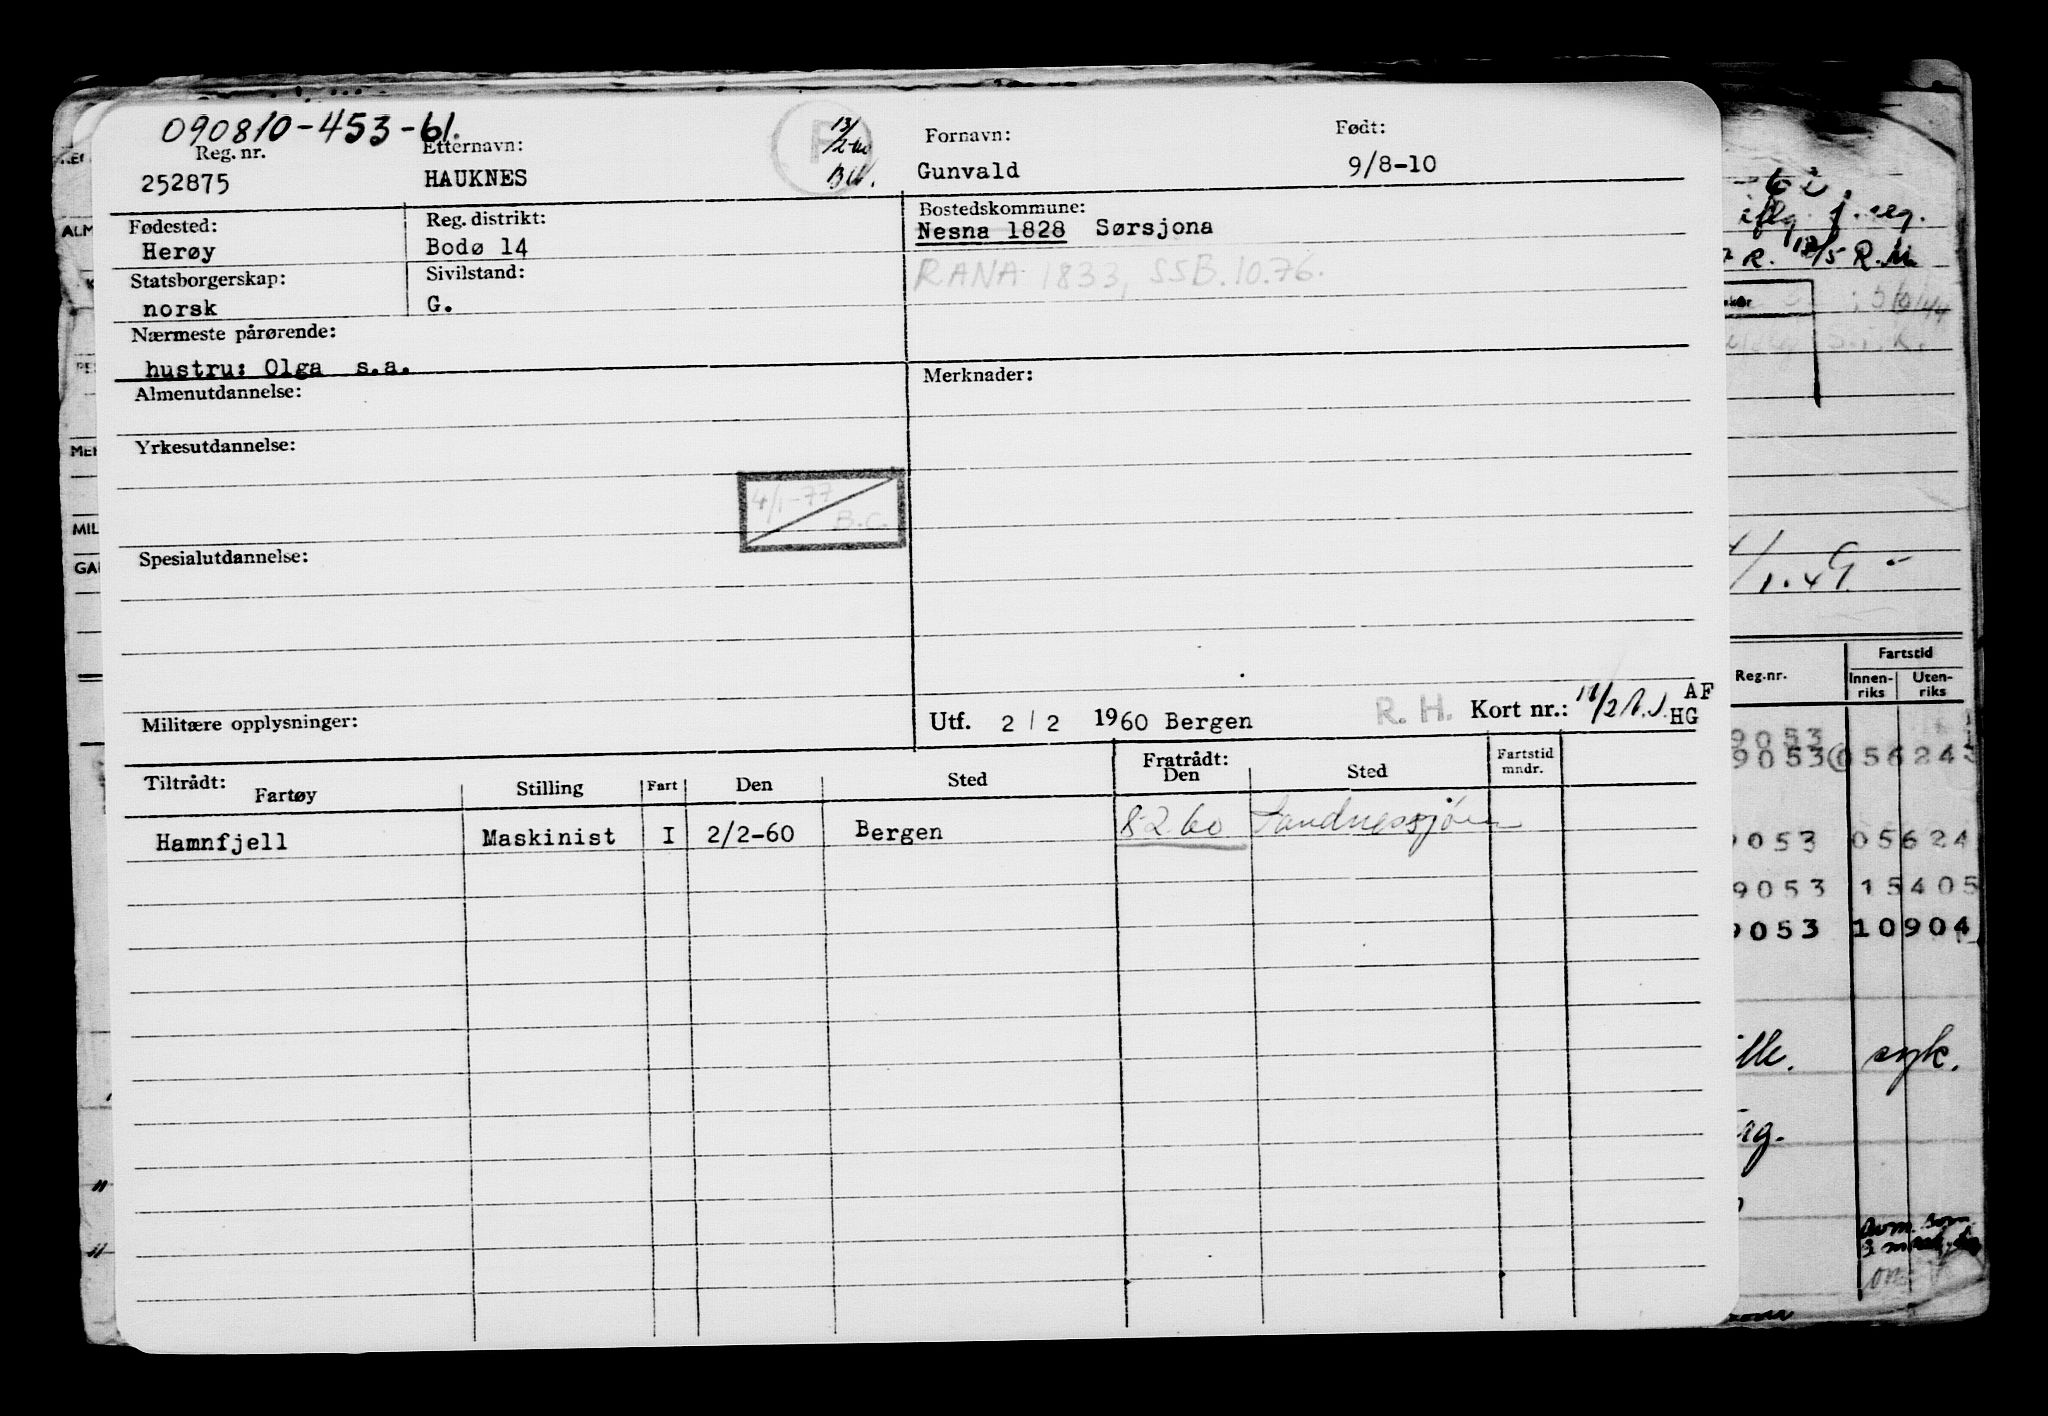 090810-453-61.
Reg. nr. Etternavn: Fornavn: Født:
252875 HAUKNES Gunvald 9/8-10
Fødested: Reg. distrikt: Bostedskommune:
Herøy Bodø 14 Nesna 1828 Sørsjona
Statsborgerskap: Sivilstand: RANA 1833, SSB.10.76.
norsk G.
Nærmeste pårørende:
hustru: Olga s.a.
Almenutdannelse: Merknader:
Yrkesutdannelse:
4/1-77
B.C.
Spesialutdannelse:
Militære opplysninger: Utf. 2/2 1960 Bergen R. H. Kort nr.: AF
HG
Tiltrådt: Fratrådt: Fartstid
mndr.
Fartøy Stilling Fart Den Sted Den Sted
Hamnfjell Maskinist I 2/2-60 Bergen 8 2 60 Sandnessjøen
ALM
MIL
iflg. j. reg.
R. M.
Reg.nr. Fartstid
Innen-
riks Uten-
riks
9053
9053 056243
9053 05624
9053 15405
9053 10904